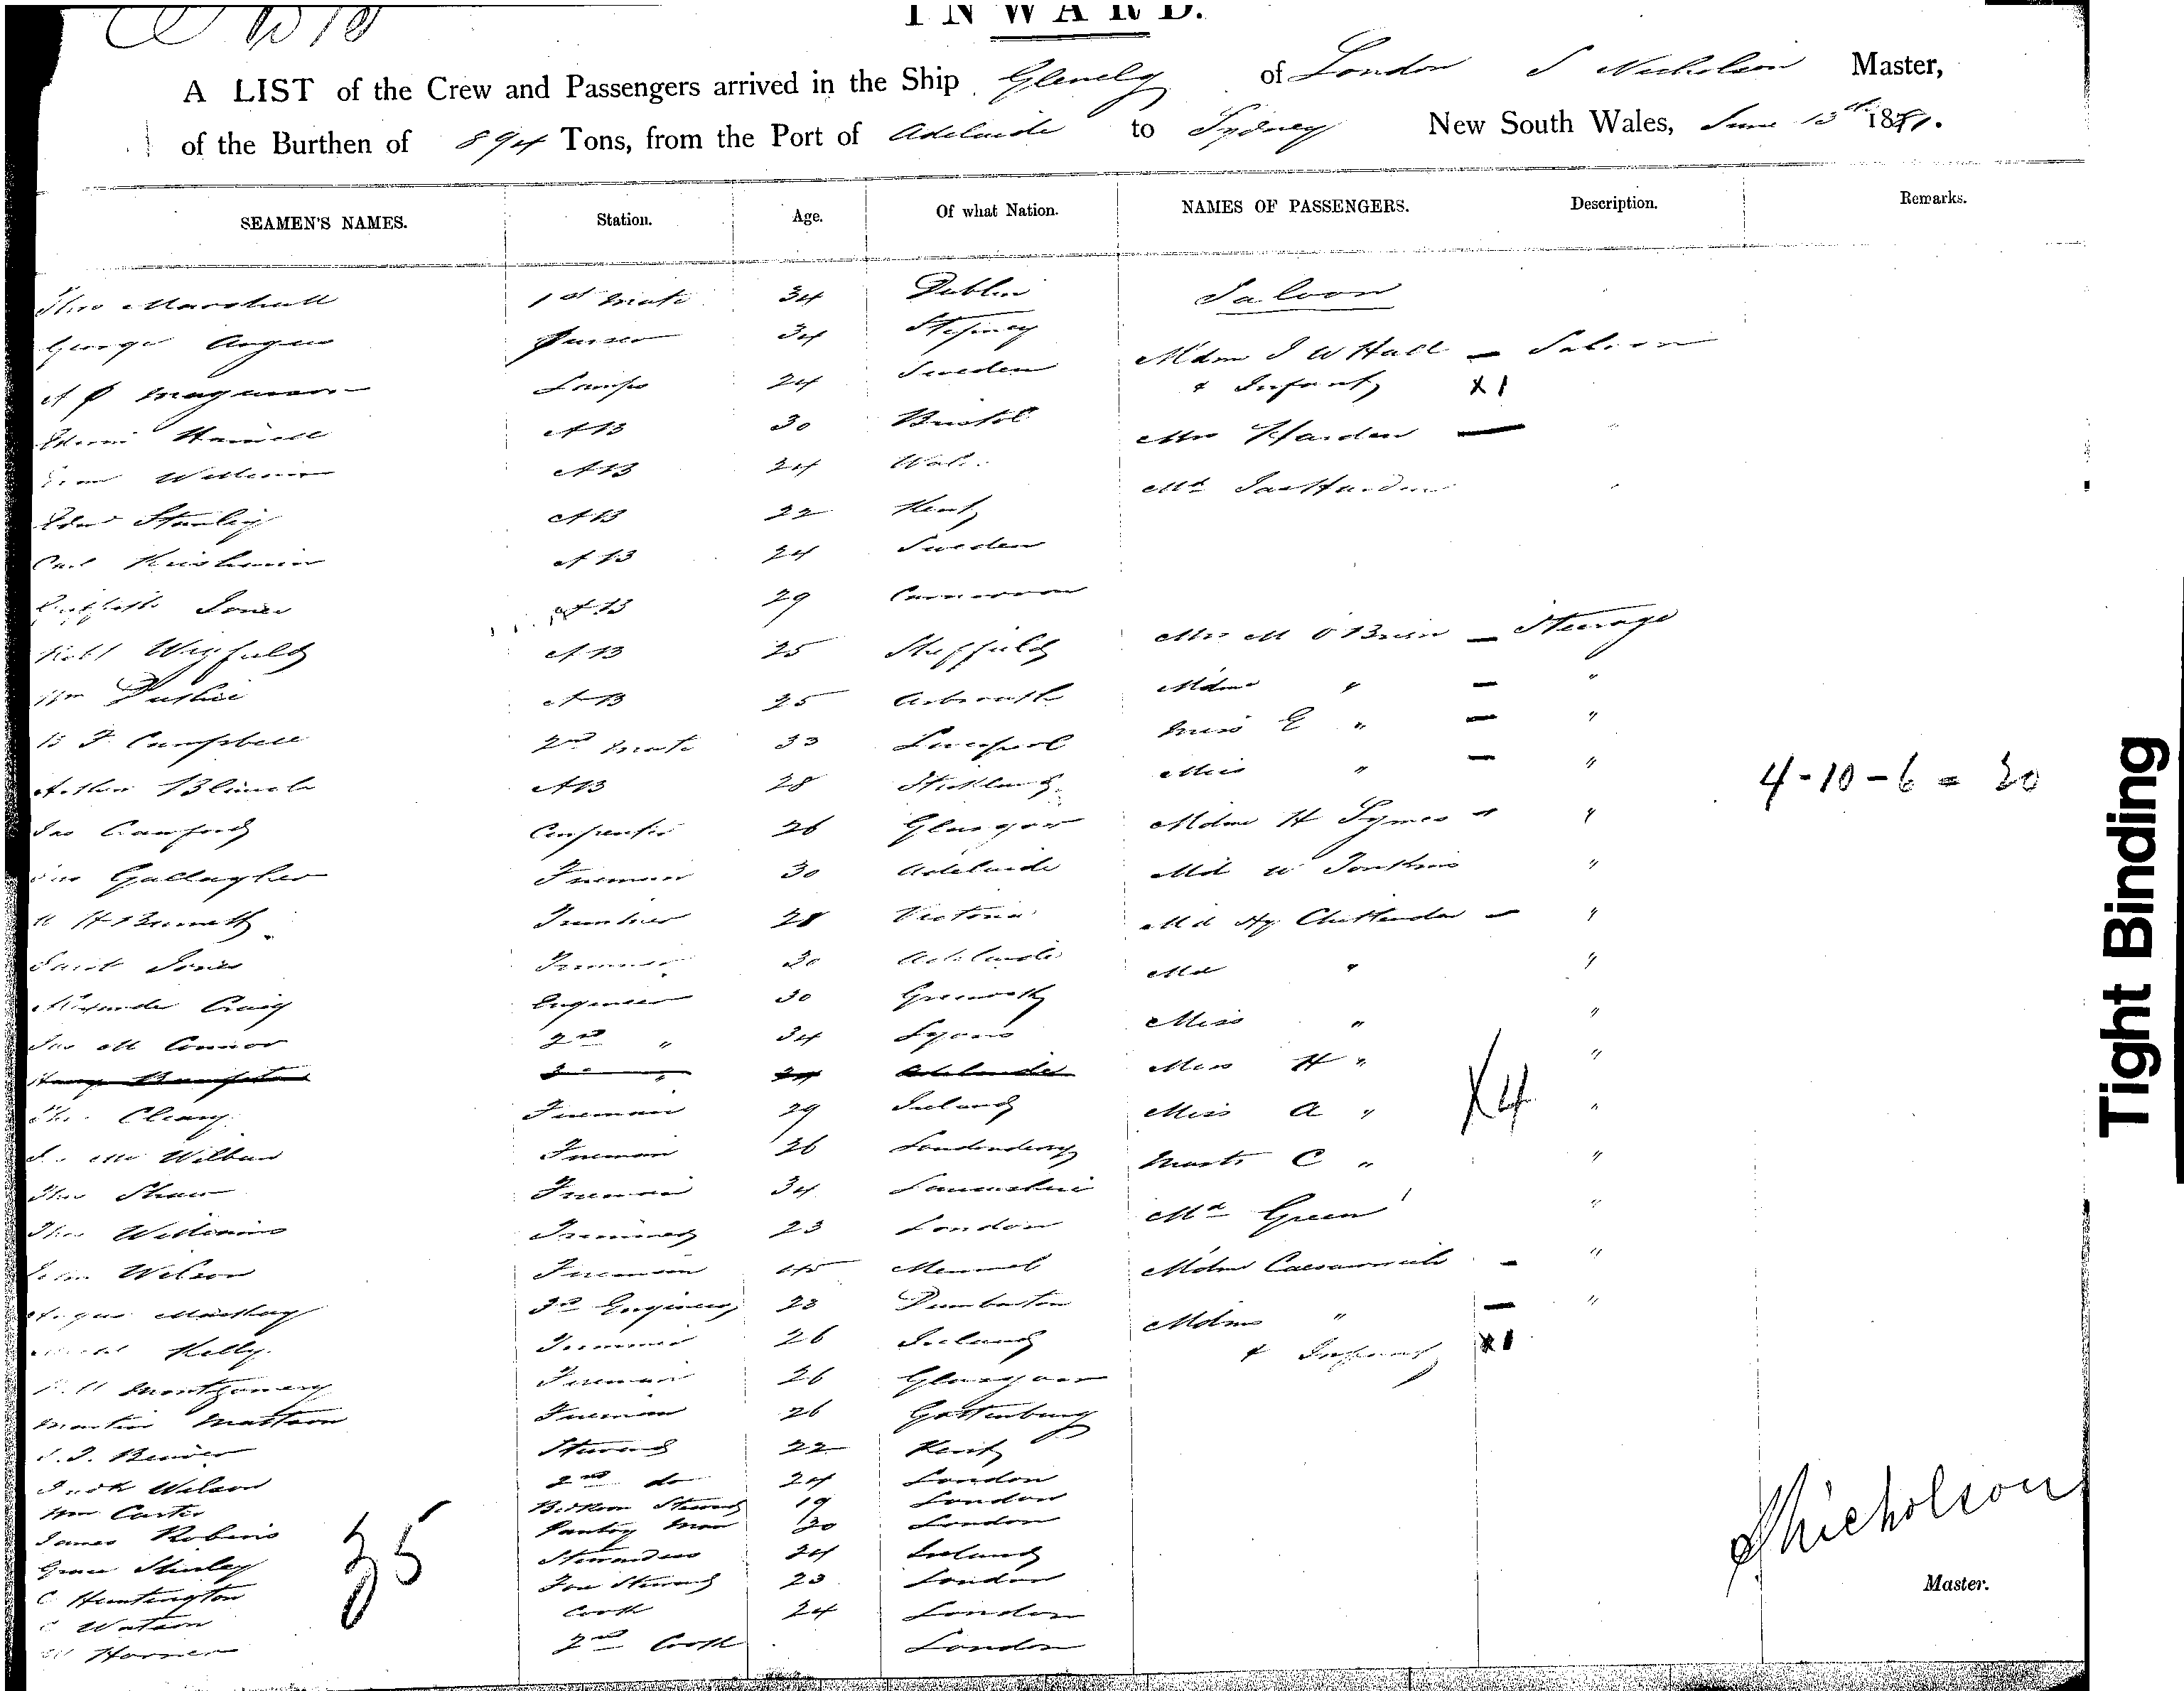 INWARD.
A LIST of the Crew and Passengers arrived in the Ship Glenelg of London S Nicholson Master,
of the Burthen of 894 Tons, from the Port of Adelaide to Sydney New South Wales, June 13th 1881.
SEAMEN'S NAMES. Station. Age. Of what Nation. NAMES OF PASSENGERS. Description. Remarks.
Thos Marshall 1st Mate 34 Dublin Saloon
George Angus Purser 34 Stepney
Mdm J W Hall — Saloon
A P Magnuson Lamps 24 Sweden & Infant X1
Hamell AB 30 Bristol Mrs Harden — "
AB 24 Wales
Mr Jas Harden "
Edwd Stanley AB 22 Kent
Carl AB 24 Sweden
Griffith Jones AB 29 Carnarvon
Mrs M O'Brien — Steerage
Robt Wigfield AB 25 Sheffield
Mdme " — "
Wm Duthie AB 25 Arbroath
Miss E " — "
B F Campbell 2nd Mate 33 Liverpool
Miss " — "
Arthur AB 28
4-10-6 = 20
Jas Crawford Carpenter 26 Glasgow Mdme H Symes "
Gallagher Fireman 30 Adelaide Md W Jonkins "
H Bennett Trimmer 28 Victoria Md Hy Chittenden — "
David Jones 30 Adelaide Md " "
Alexander Craig Engineer 30 Greenock Miss " "
Jas M Connor 2nd " 34 Miss H " "
Adelaide
Thos Cleary Fireman 29 Ireland Miss A " X4 "
Fireman 26 Londonderry Mastr C " "
Thos Shaw Fireman 34 Lancashire
Md Green "
Thos Williams Trimmer 23 London
John Wilson Fireman 45 Memmel Mdme — "
Angus Mackay 3rd Engineer 23 Dumbarton Mdme " — "
Michael Kelly Trimmer 26 Ireland & Infant X1
Montgomery Fireman 26 Glasgow
Martin Mattson Fireman 26 Gottenburg
Steward 22 Kent
Fredk Wilson 2nd do 24 London
Wm Carter Bedroom Steward 19 London
James Robins Pantry Man 20 London
Grace Shirley Stewardess 24 Ireland
35
C Huntington Fore Steward 23 London
Watson Cook 24 London
Horner 2nd Cook London
S Nicholson
Master.
Tight Binding